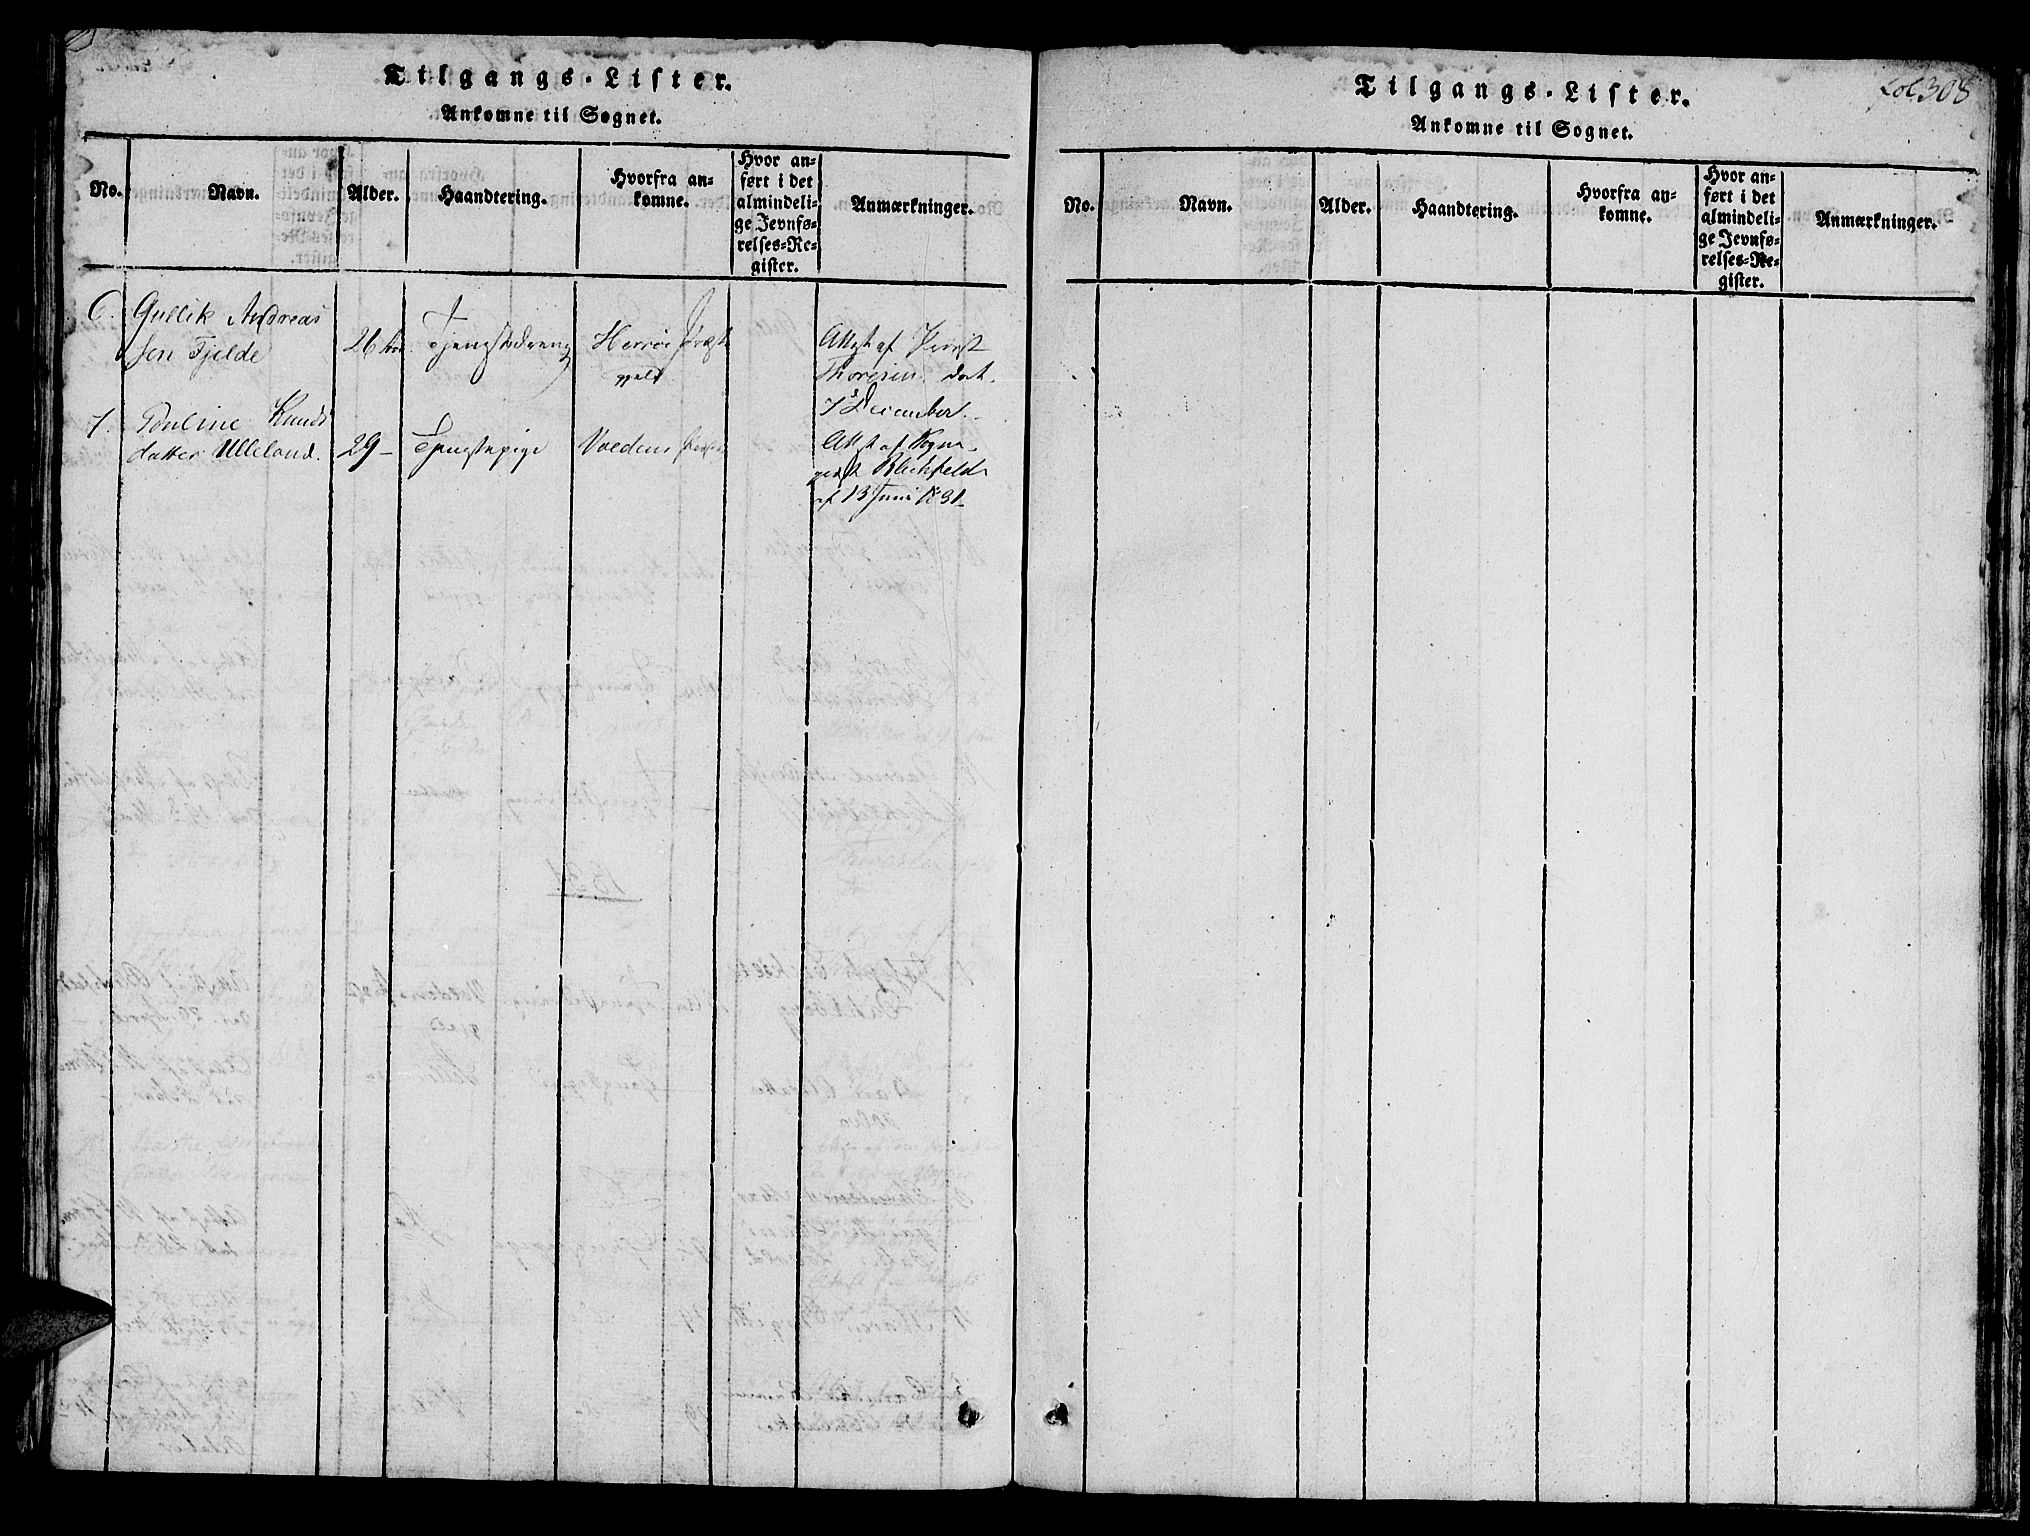 Tilgangs-Lister.
Ankomne til Sognet.
No.
Navn.
Alder.
Haandtering.
Hvorfra an-
komne.
Hvor an-
ført i det
almindeli-
ge Jevnfø-
relses-Re-
gister.
Anmærkninger.
6. Gullik Andreas
sen Fjelde 26 Tjenestedreng Herrøe
gjeld
Attest af Provst
Thoresen dat.
7 December.
7. Pouline Knuds
datter Ulleland. 29 - Tjenestepige Valdens
Attest af Sogne
præst Blichfeldt
af 13 Juni 1831
Tilgangs-Lister.
Fol 308
Ankomne til Sognet.
No.
Navn.
Alder.
Haandtering.
Hvorfra an-
komne.
Hvor an-
ført i det
almindeli-
ge Jevnfø-
relses-Re-
gister.
Anmærkninger.